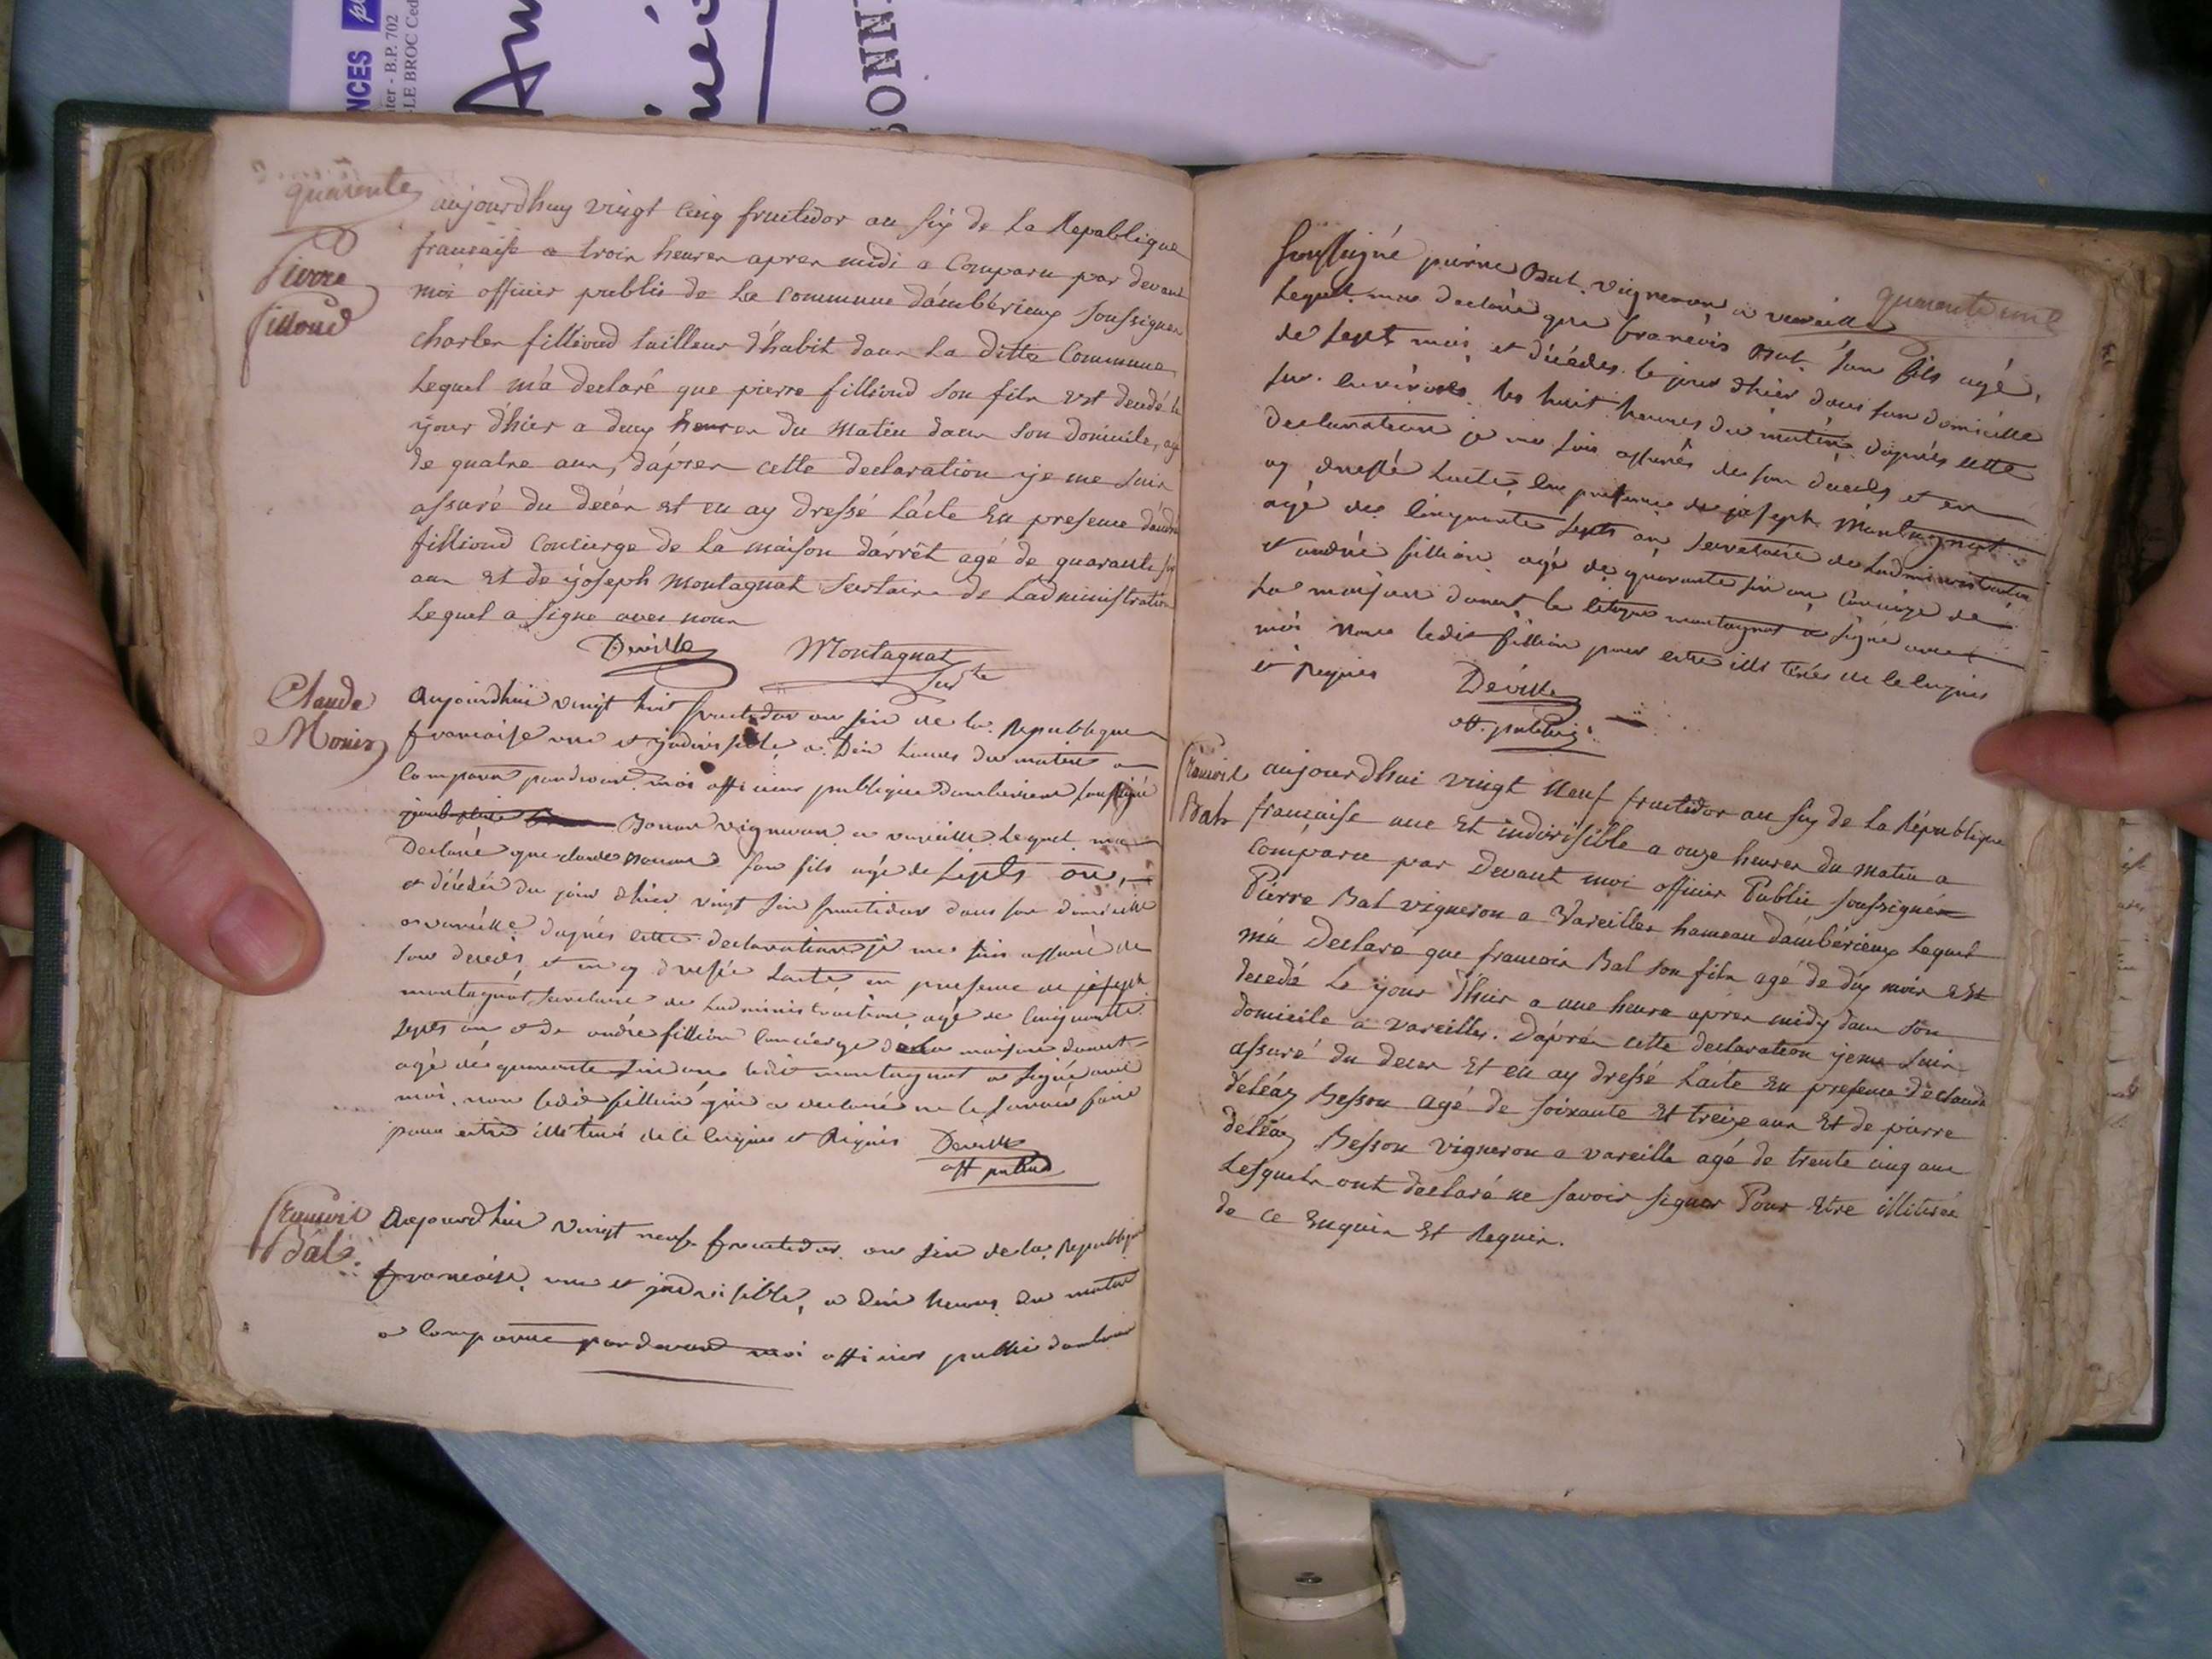 NCES
B.P. 702
LE BROC Ced
quarente
Pierre
filloud
aujourdhuy vingt cinq fructidor an six de la Republique
francaise a trois heures apres midi a Comparu par devant
moi officier public de la Commune d'ambérieux soussigner
charles fillioud tailleur d'habit dans la ditte Commune
lequel m'a declaré que pierre fillioud son fils est decedé le
jour d'hier a deux heures du matin dans son domicile, agé
de quatre ans, d'après cette declaration je me suis
assuré du décès et en ay dressé l'acte En presence d'andré
fillioud Concierge de la maison d'arrêt agé de quarante six
ans Et de joseph Montagnat secrtaire de Ladministration
Lequel a signe avec nous
Deville Montagnat
Claude
Monier
Aujourdhui vingt huit fructidor an six de la Republique
francaise une et jndivisible, a Dix heures du matin a
Comparu pardevant moi officier publique dambericux soussigné
vigneron a vareille Lequel ma
Declaré que claude son fils agé de septs ans,
et décédé du jour dhier vingt six fructidor dans son domicille
a vareille d'aprés cette declaration je me suis assuré de
son decés, et en ay dressée Lacte en presence de joseph
montagnat secretaire de Ladministration, agé de Cinquante
septs an et de andre fillion Concierge de la maison darret
agé de quarante six ans ledit montagnat a signé avec
moi. non ledit fillion qui a declaré ne le savoir faire
pour estre illiteré de ce enquis et Requis Deville
off public
francois
Bal
Aujourdhui vingt neuf fructidor an six de la Republique
francaise, une et jndivisible, a dix heures du matin
a Comparue pardevant moi officier public
quarente une
soussigné pierre Bal vigneron a vareille
Lequel ma declaré que francois Bal son fils agé
de sept mois et décédés le jour d'hier dans son domicille
sur les huit heures du matin d'aprés cette
Declaration je me suis assurés de son decés et en
ay dressé Lacte en presence de joseph Montagnat
agé de Cinquante septs an secretaire de Ladministration
et andré fillion agé de quarante six an Concierge de
La maison darret le montagnat a signé avec
moi non ledit fillion pour estre illiterés de ce enquis
et Requis Deville
off. public
francois
Bal
aujourdhui vingt neuf fructidor an six de la République
française une et indivisible a onze heures du matin a
comparu par Devant moi officier Public soussigné
Pierre Bal vigneron a Vareilles hameau d'ambérieux Lequel
m'a Declaré que francois Bal son fils agé de dix mois est
decedé le jour d'hier a une heure apres midy dans son
domicile a vareilles. D'après cette declaration je me suis
assuré du deces Et en ay dressé Lacte En presence de claude
déléaz Besson agé de soixante Et treize ans Et de pierre
déléaz Besson vigneron a vareille agé de trente cinq ans
Lesquels ont declaré ne savoir signer Pour Etre illiterés
de ce Enquis Et Requis.